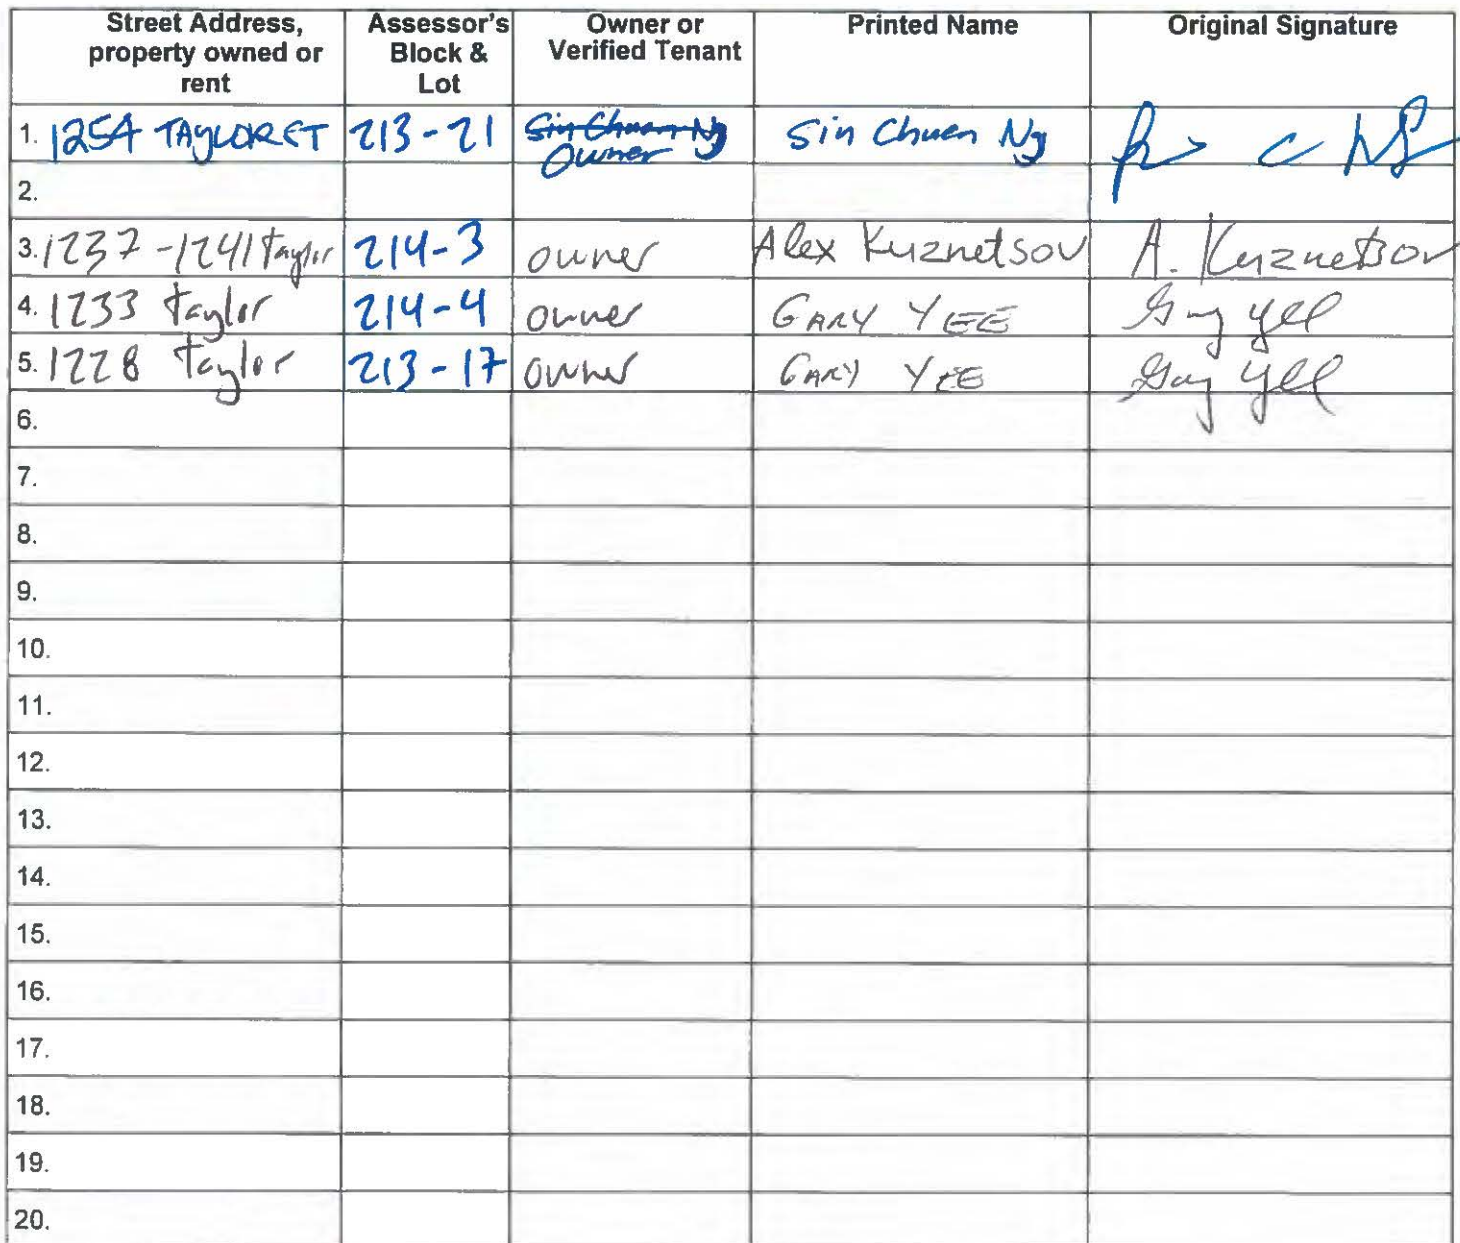 Street Address, property owned or rent | Assessor's Block & Lot | Owner or Verified Tenant | Printed Name | Original Signature
1. 1254 TAYLOR ST 213-21 Sin Chuen Ng Owner Sin Chuen Ng
2.
3. 1237-1241 Taylor 214-3 owner Alex Kuznetsov A. Kuznetsov
4. 1233 Taylor 214-4 owner GARY YEE Gary Yee
5. 1228 Taylor 213-17 owner GARY YEE Gary Yee
6.
7.
8.
9.
10.
11.
12.
13.
14.
15.
16.
17.
18.
19.
20.